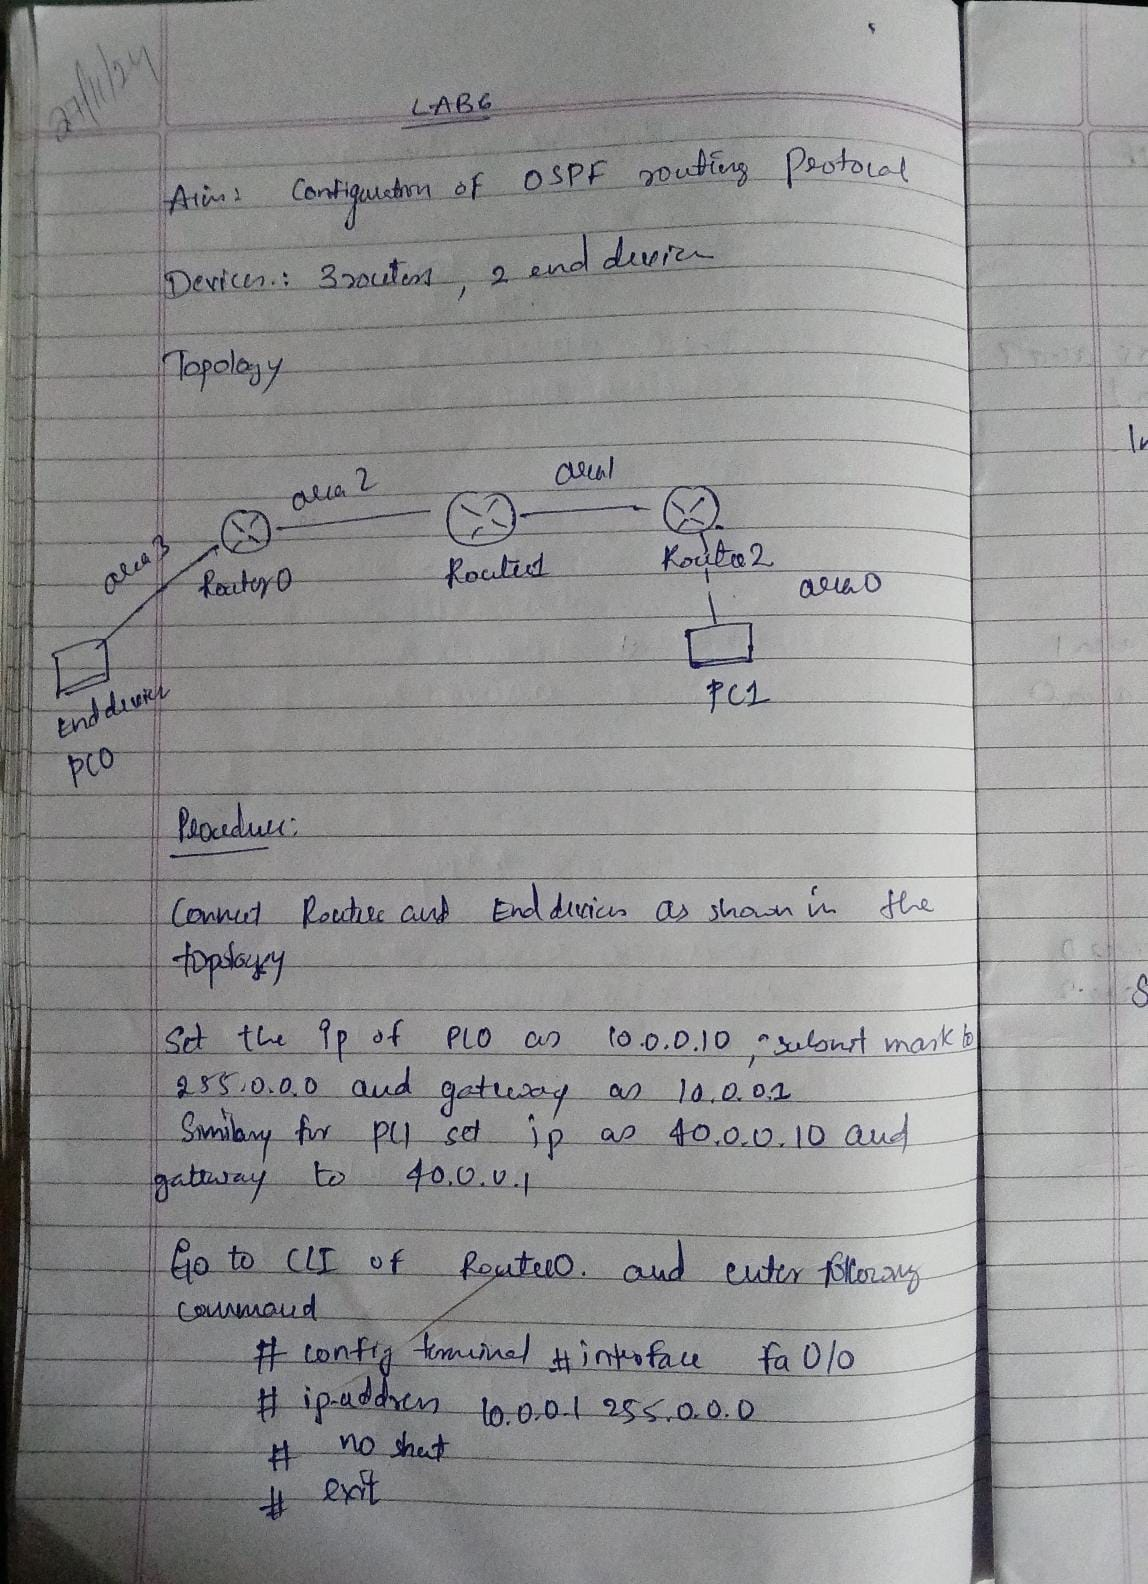 27/11/24
LAB6
Aim: Configuration of OSPF routing Protocal
Devices: 3 routers, 2 end device
Topology
area 3
area 2
area1
Router0
Router1
Router2
area0
End device
PC0
PC1
Procedure:
Connect Router and End devices as shown in the
topology
Set the Ip of PC0 as 10.0.0.10, subnet mask to
255.0.0.0 and gateway as 10.0.0.1
Similary for PC1 set ip as 40.0.0.10 and
gateway to 40.0.0.1
Go to CLI of Router0. and enter following
command
# config terminal # interface fa 0/0
# ip address 10.0.0.1 255.0.0.0
# no shut
# exit